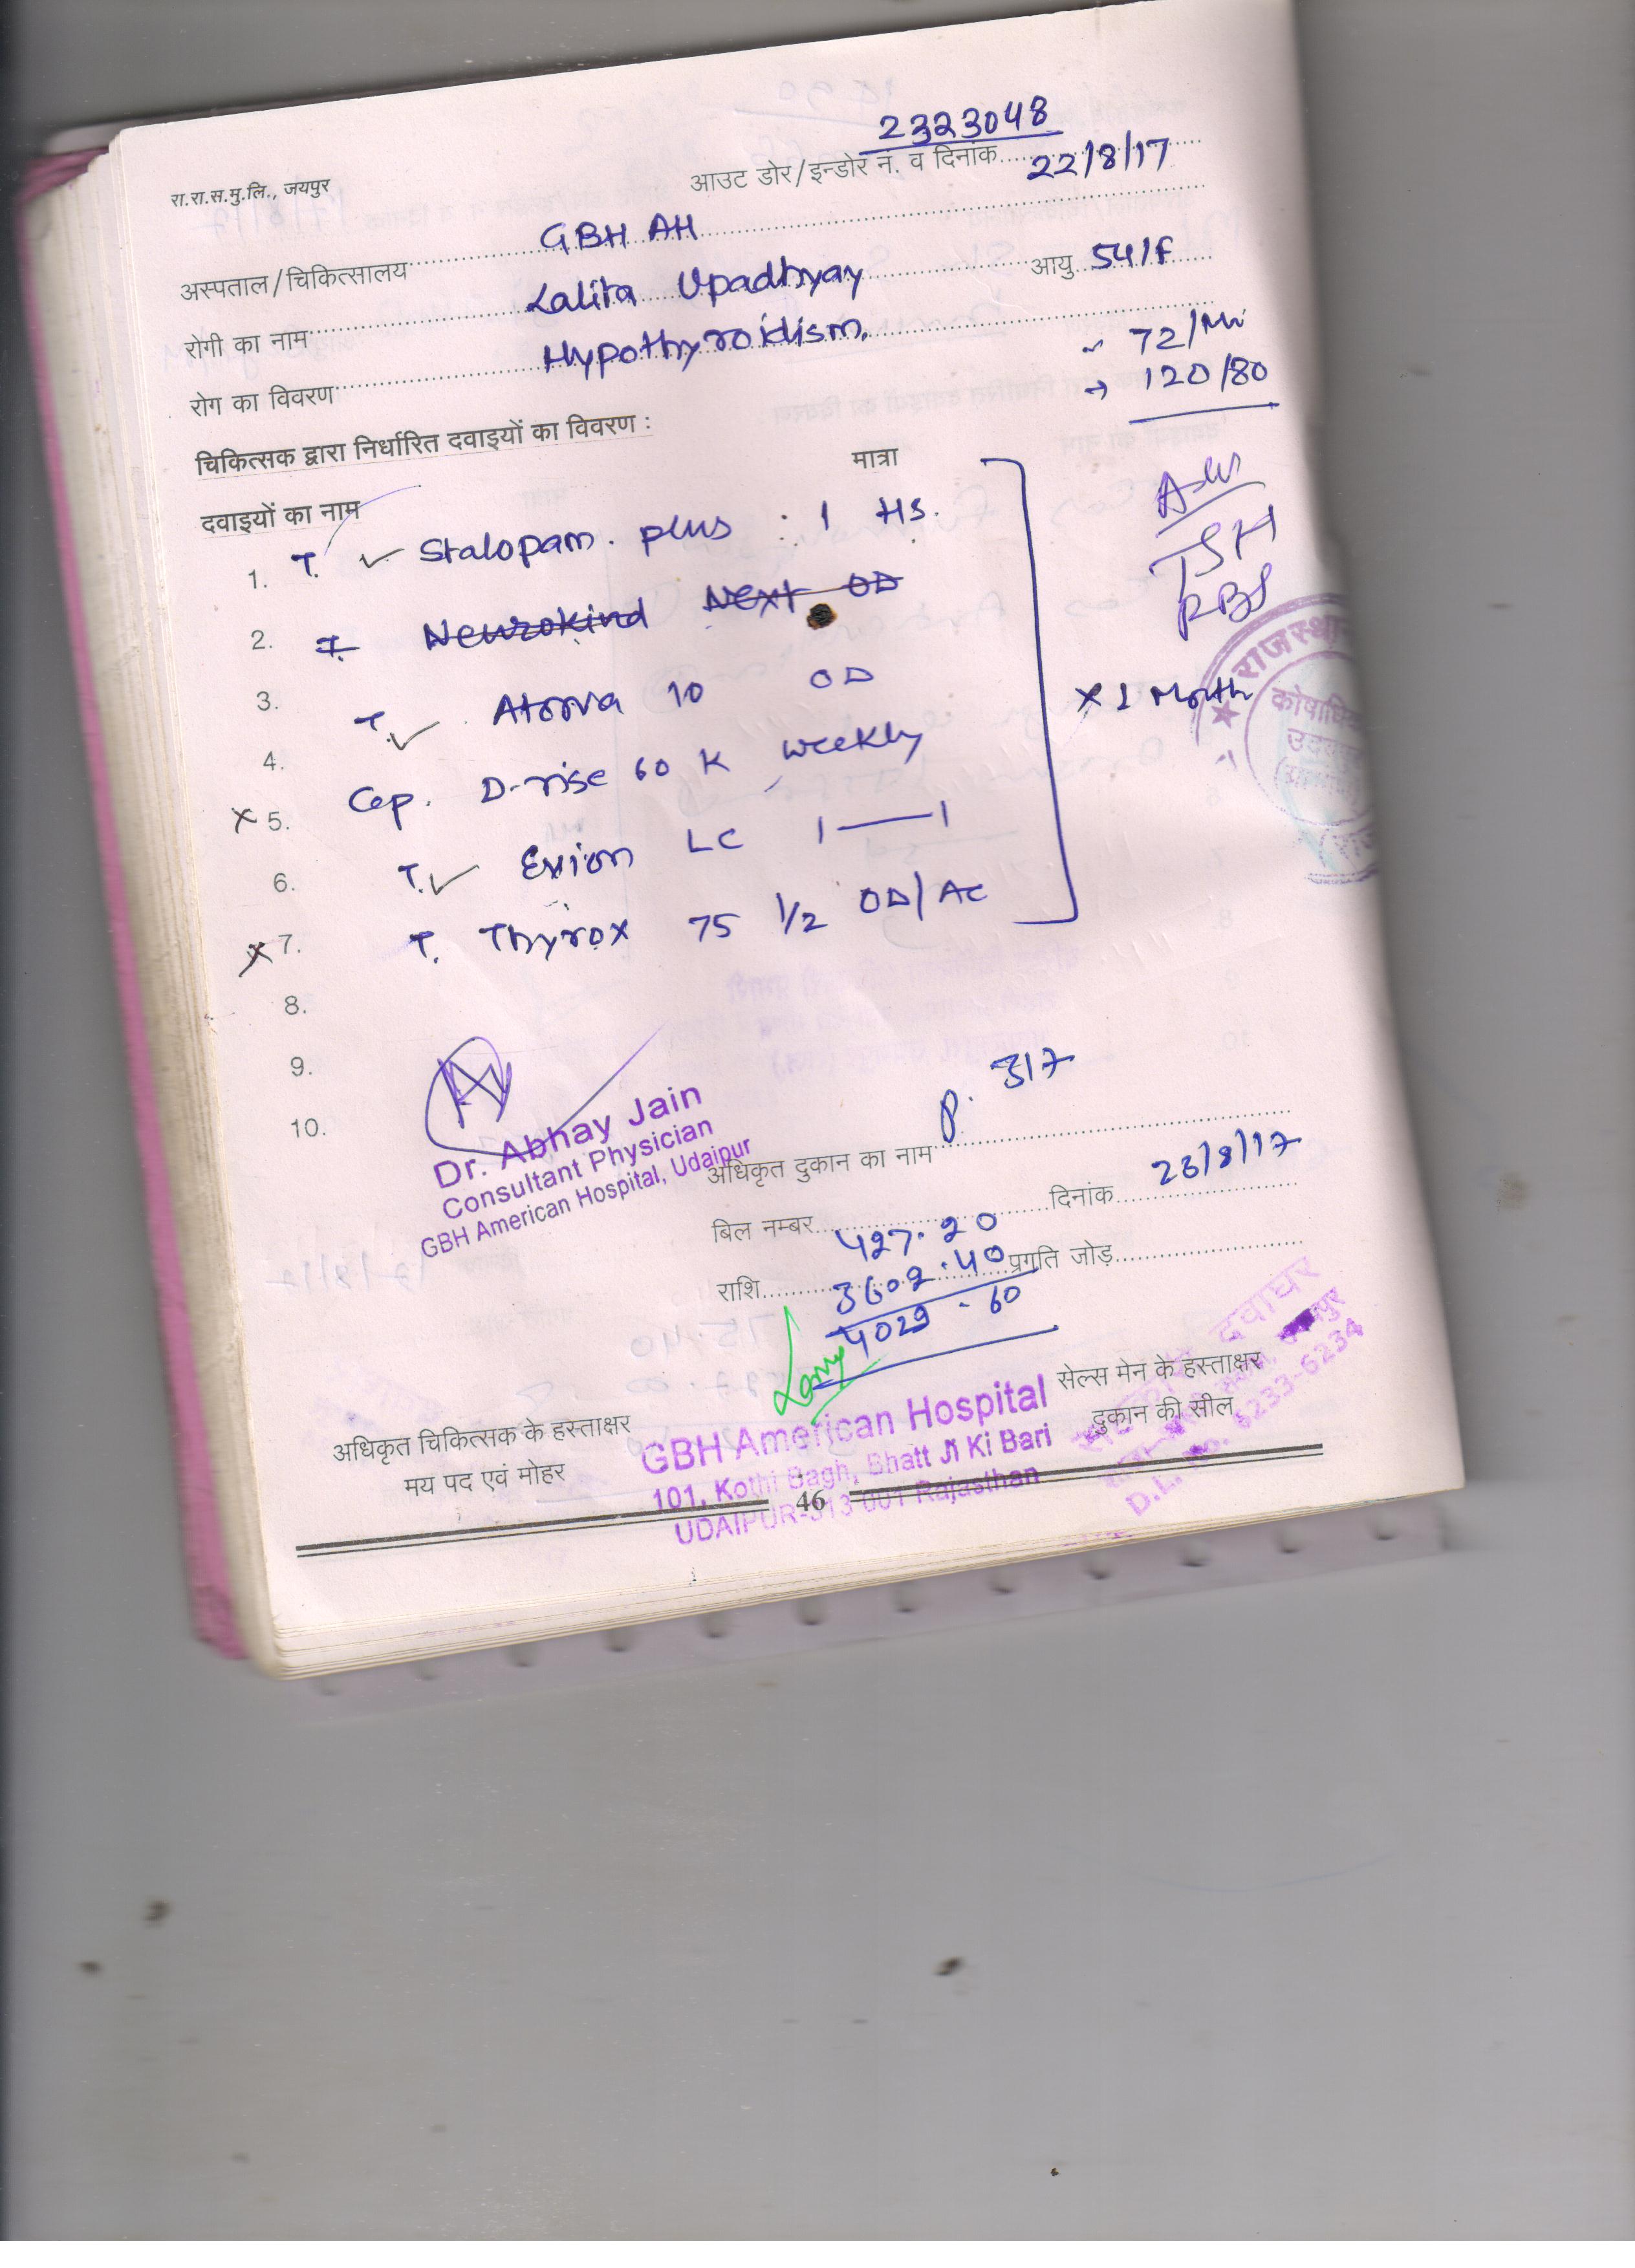 2323048
रा.रा.स.मु.लि., जयपुर
आउट डोर/इन्डोर नं. व दिनांक 22/8/17
अस्पताल/चिकित्सालय GBH AH
रोगी का नाम Lalita Upadhyay आयु 54/F
रोग का विवरण Hypothyroidism.
72/Mi
120/80
चिकित्सक द्वारा निर्धारित दवाइयों का विवरण :
दवाइयों का नाम मात्रा
Adv
TSH
RBS
1. T. ✓ Stalopam. plus : 1 HS.
2. T. Neurokind Next OD
3. T. ✓ Atorva 10 OD
4. Cap. D-rise 60 K weekly
x 5.
6. T. ✓ Evion LC 1—1
x 7. T. Thyrox 75 1/2 OD/AC
x 1 Month
8.
9.
10.
Dr. Abhay Jain
Consultant Physician
GBH American Hospital, Udaipur
P. 317
अधिकृत दुकान का नाम
बिल नम्बर दिनांक 23/8/17
427.20
राशि 3602.40 प्रगति जोड़
4029.60
सेल्स मेन के हस्ताक्षर
दुकान की सील
अधिकृत चिकित्सक के हस्ताक्षर
मय पद एवं मोहर
GBH American Hospital
101, Kothi Bagh, Bhatt Ji Ki Bari
UDAIPUR-313 001 Rajasthan
दवाघर
D.L. No. 6233-6234
राजस्था
कोषाधि
46